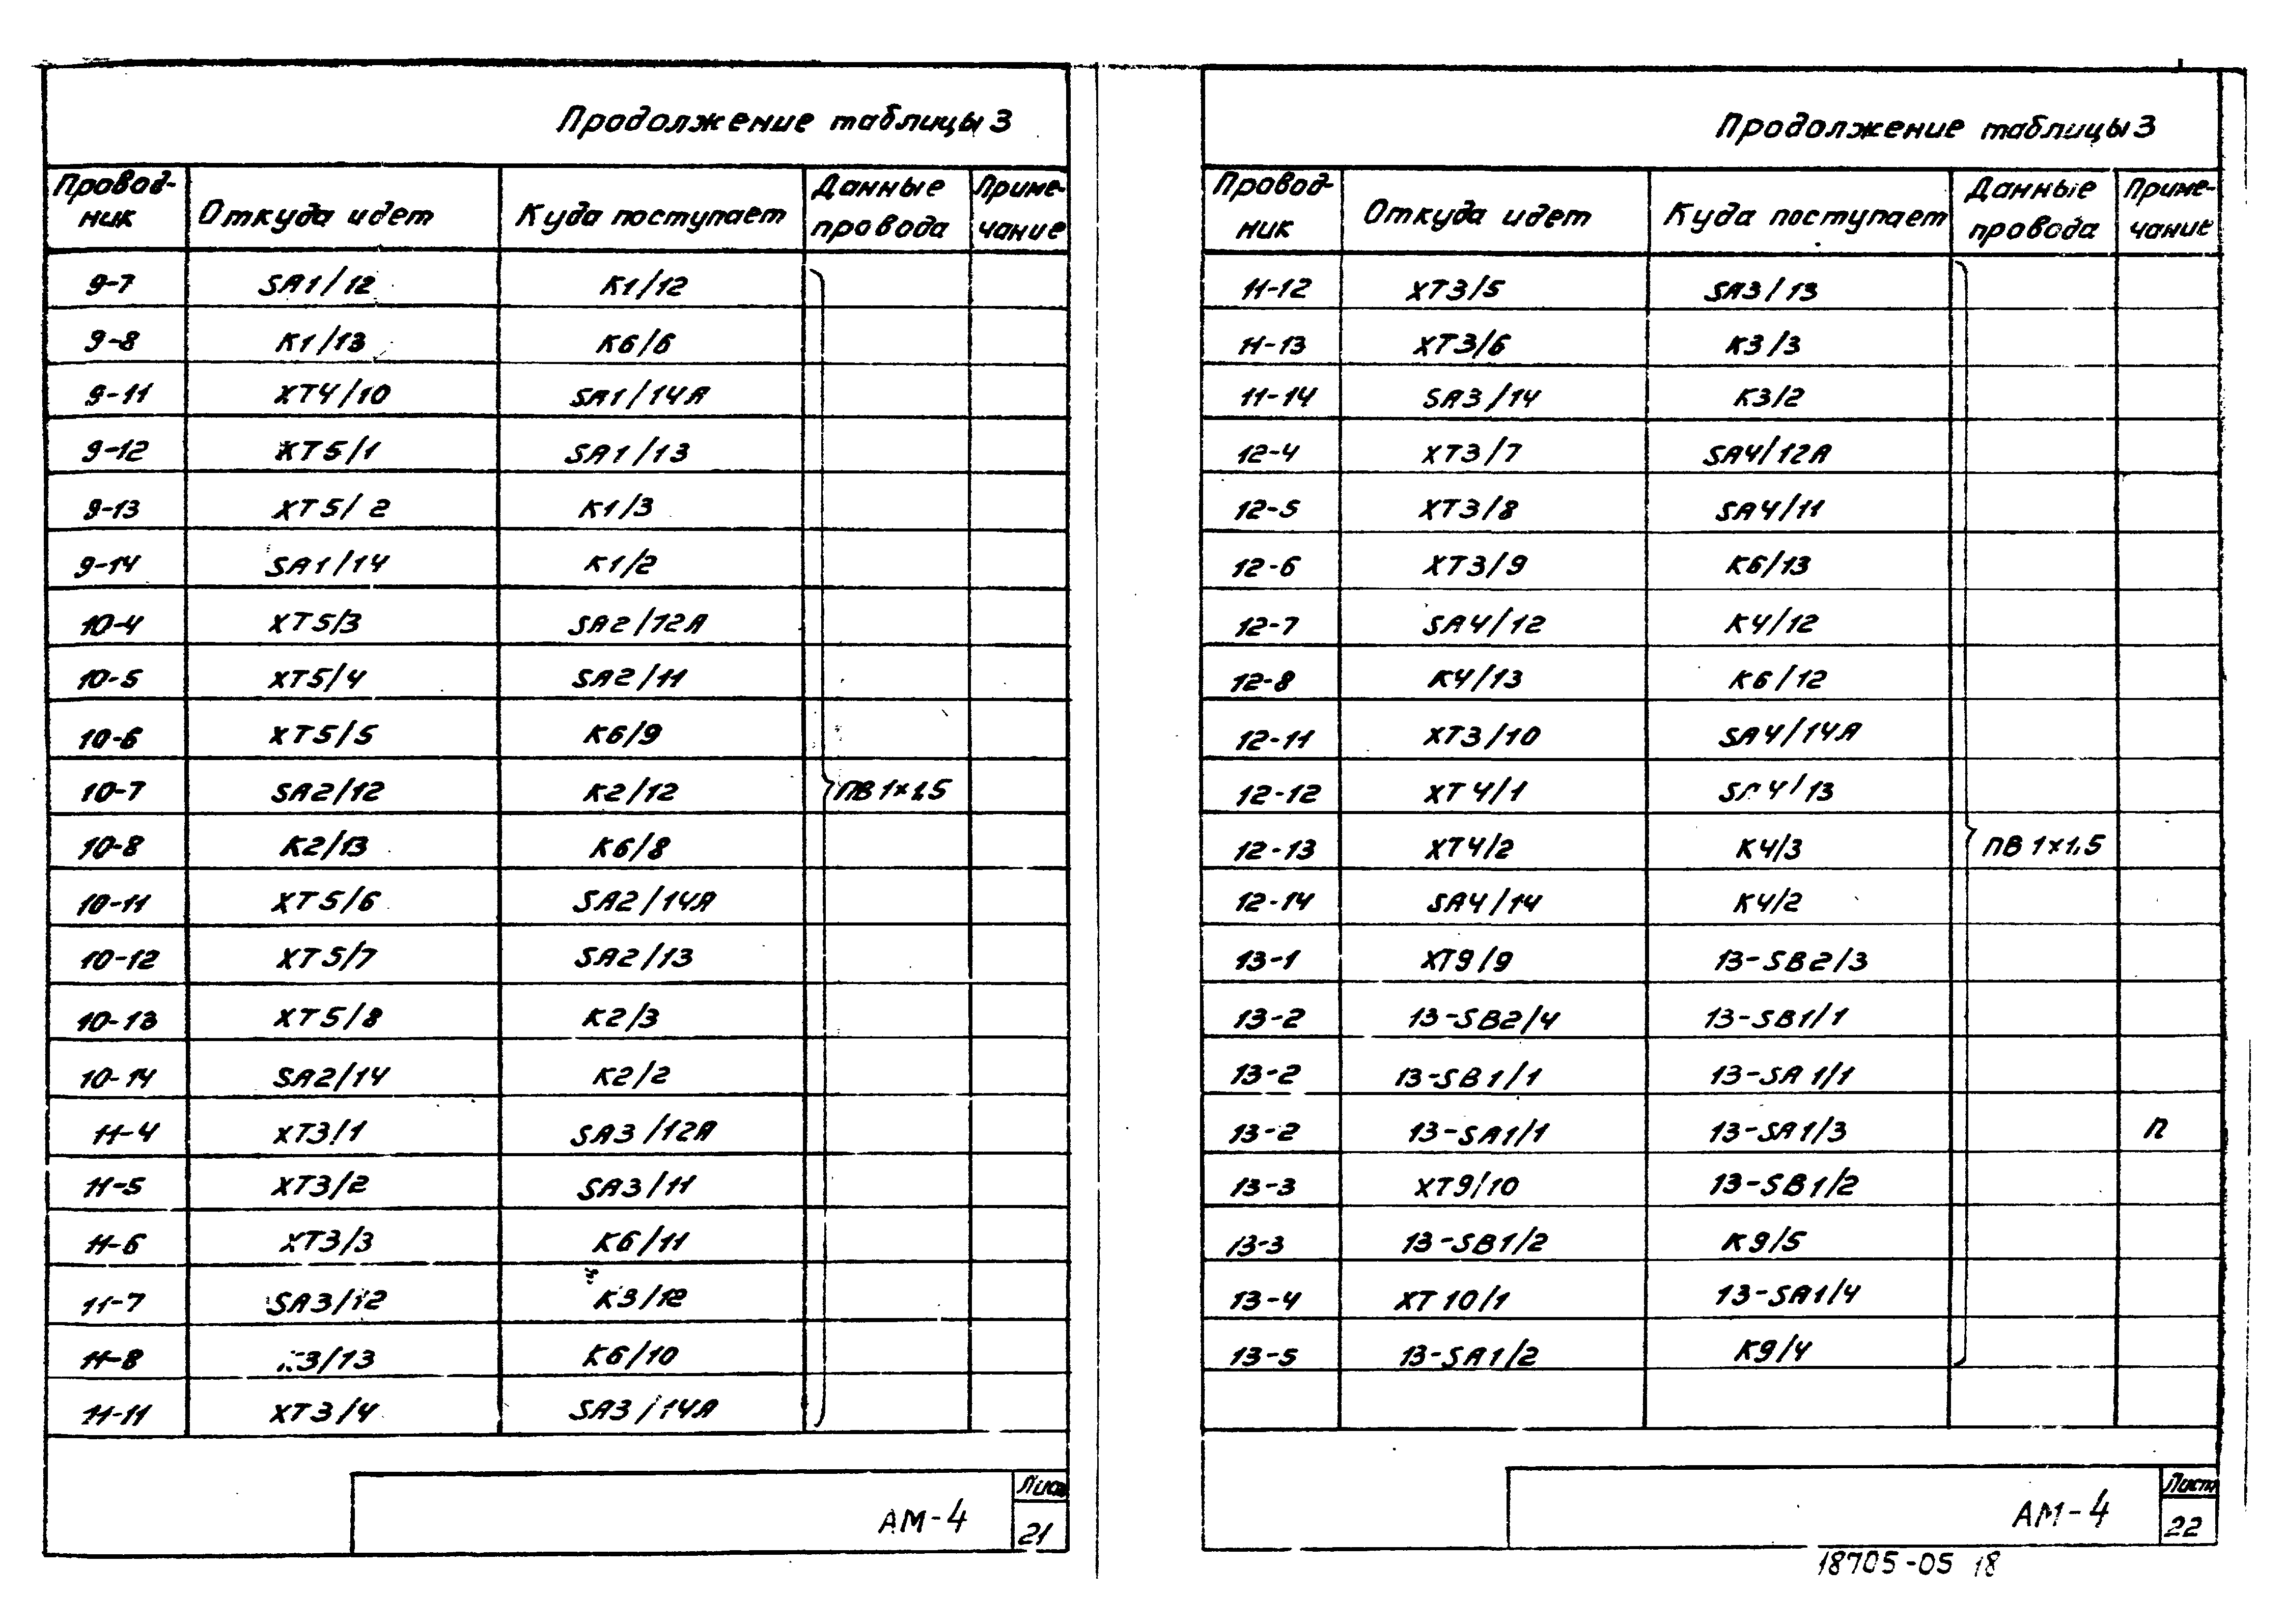 Продолжение таблицы 3
Провод-ник Откуда идет Куда поступает Данные провода Приме-чание
9-7 SA1/12 К1/12
9-8 К1/13 К6/6
9-11 XT4/10 SA1/14A
9-12 XT5/1 SA1/13
9-13 XT5/2 К1/3
9-14 SA1/14 К1/2
10-4 XT5/3 SA2/12A
10-5 XT5/4 SA2/11
10-6 XT5/5 К6/9
10-7 SA2/12 К2/12 ПВ 1×1,5
10-8 К2/13 К6/8
10-11 XT5/6 SA2/14A
10-12 XT5/7 SA2/13
10-13 XT5/8 К2/3
10-14 SA2/14 К2/2
11-4 XT3/1 SA3/12A
11-5 XT3/2 SA3/11
11-6 XT3/3 К6/11
11-7 SA3/12 К3/12
11-8 К3/13 К6/10
11-11 XT3/4 SA3/14A
АМ-4
Лист
21
Продолжение таблицы 3
Провод-ник Откуда идет Куда поступает Данные провода Приме-чание
11-12 XT3/5 SA3/13
11-13 XT3/6 К3/3
11-14 SA3/14 К3/2
12-4 XT3/7 SA4/12A
12-5 XT3/8 SA4/11
12-6 XT3/9 К6/13
12-7 SA4/12 К4/12
12-8 К4/13 К6/12
12-11 XT3/10 SA4/14A
12-12 XT4/1 SA4/13
12-13 XT4/2 К4/3 ПВ 1×1,5
12-14 SA4/14 К4/2
13-1 XT9/9 13-SB2/3
13-2 13-SB2/4 13-SB1/1
13-2 13-SB1/1 13-SA1/1
13-2 13-SA1/1 13-SA1/3 П
13-3 XT9/10 13-SB1/2
13-3 13-SB1/2 К9/5
13-4 XT10/1 13-SA1/4
13-5 13-SA1/2 К9/4
АМ-4
Лист
22
18705-05 18